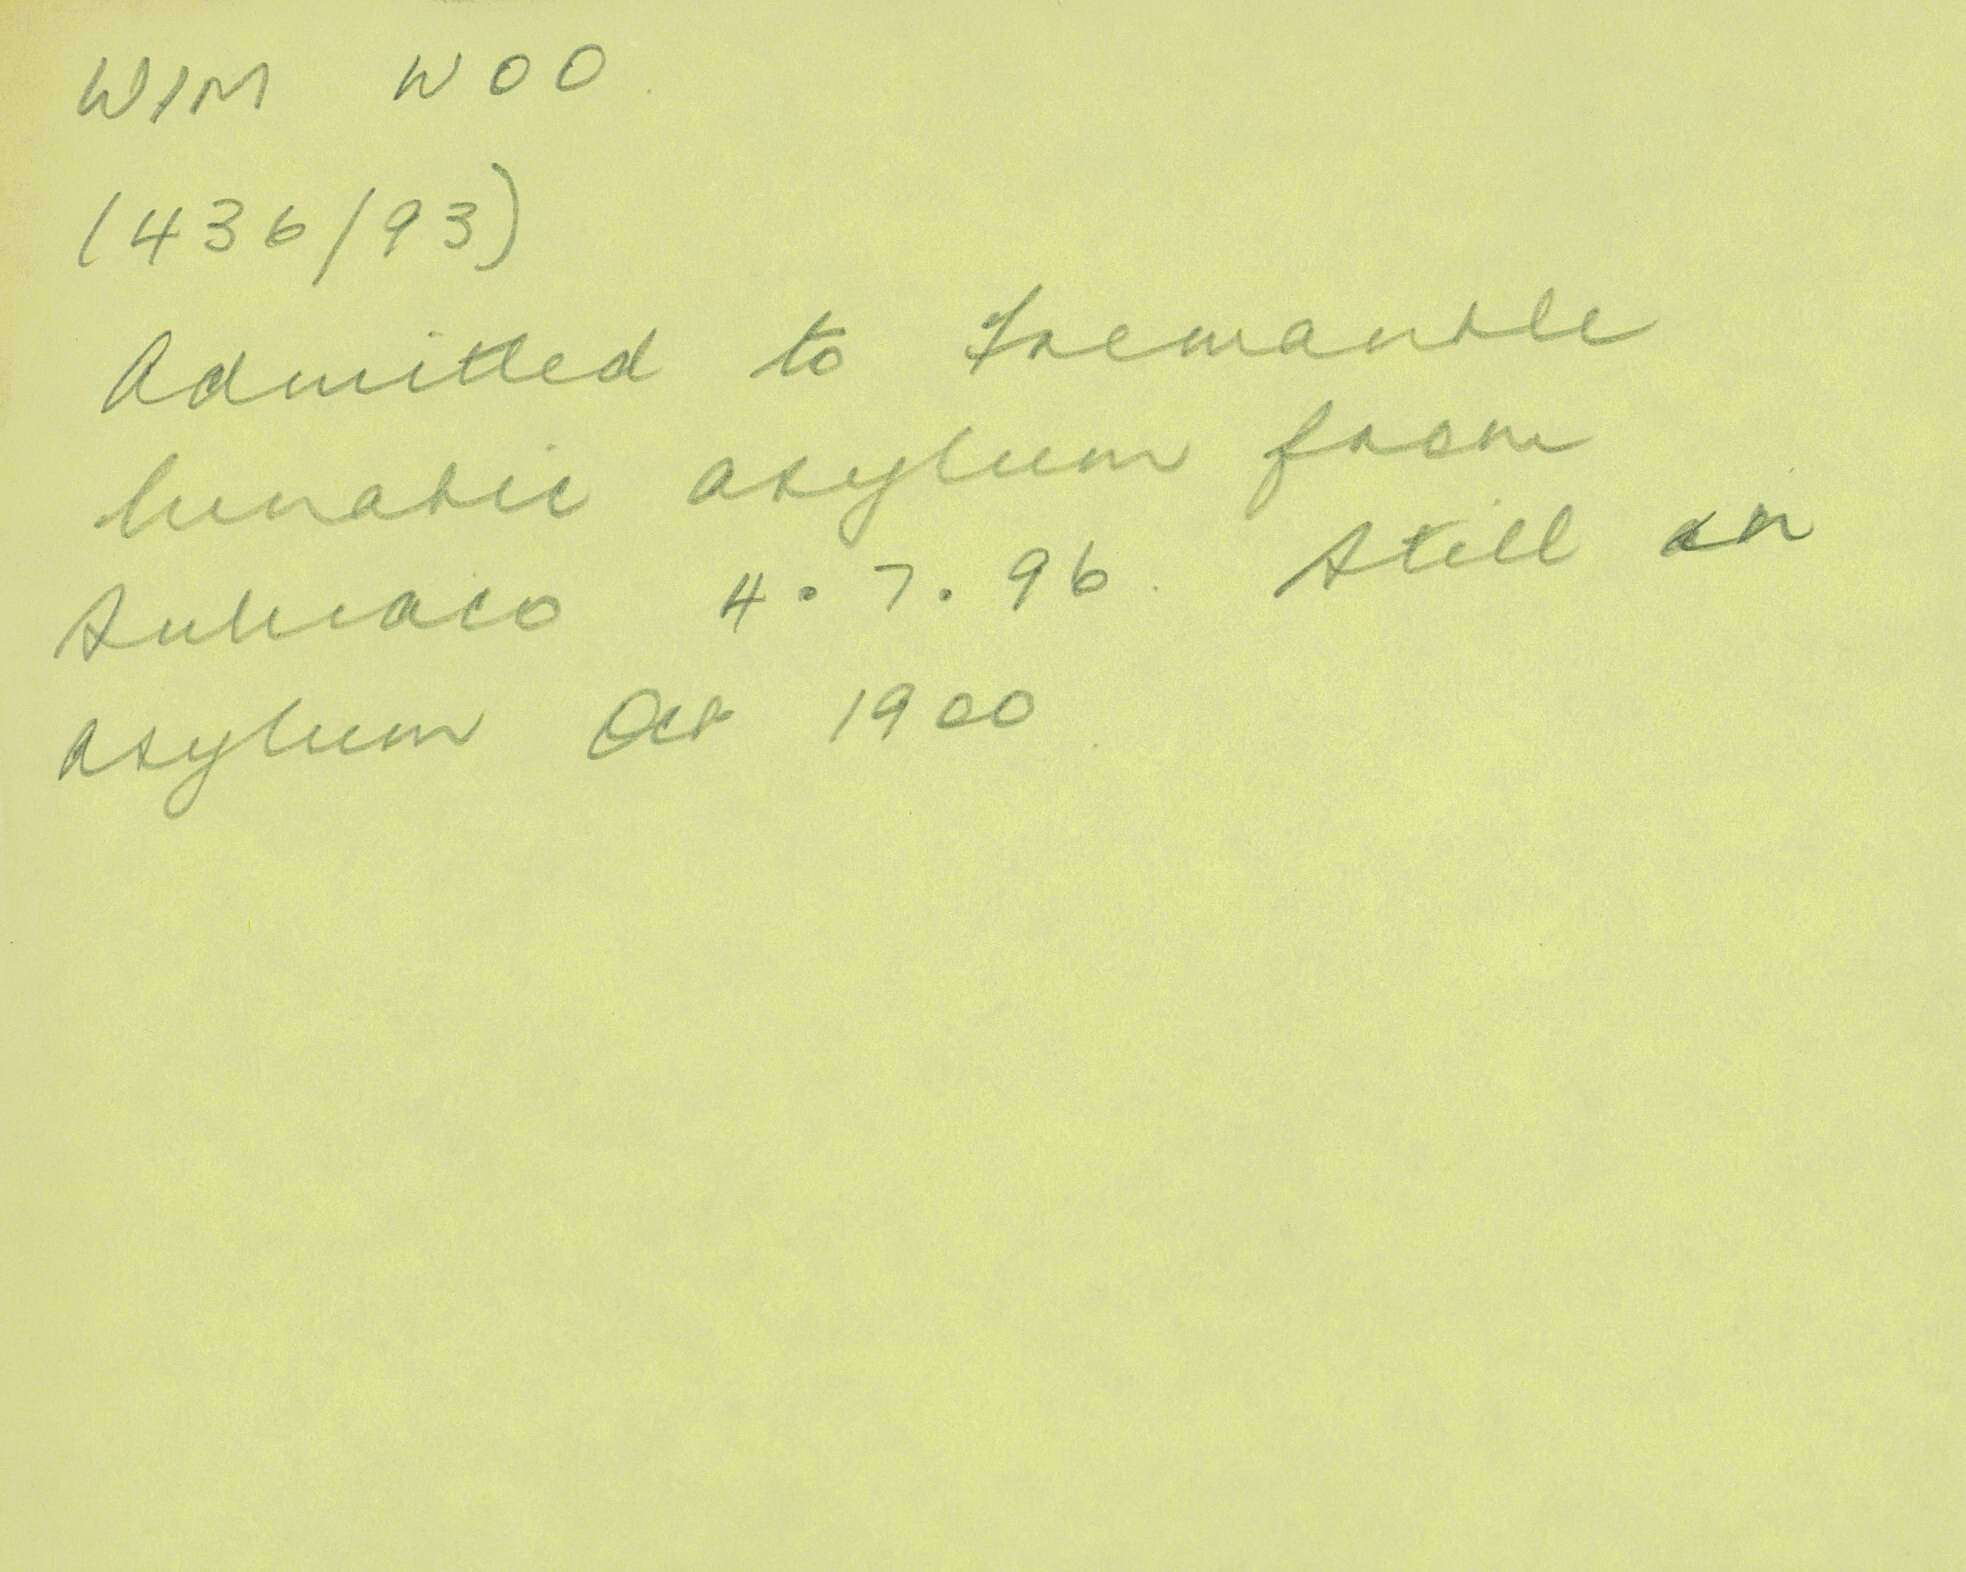 WIM WOO.
(436/93)
Admitted to Fremantle
lunatic asylum from
Subiaco 4.7.96. Still in
asylum Oct 1900.